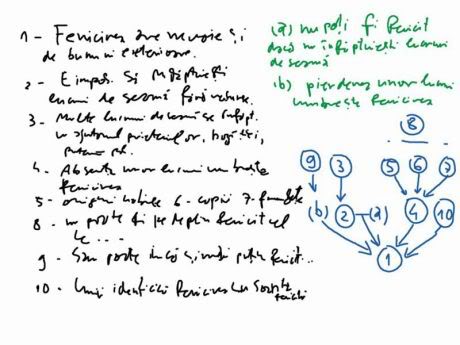 1 - Fericirea are nevoie și
de bunuri exterioare.
2 - E impos. să înfăptuiești
lucruri de seamă fără resurse.
3 - Multe lucruri de seamă se înfăpt.
cu ajutorul prietenilor, bogăției,
puterii pol.
4. Absența unor lucruri umbrește
fericirea
5 - originea nobilă 6 - copii 7 - frumusețe
8 - nu poate fi pe deplin fericit cel
9 - Sau poate încă și mai puțin fericit...
10 - Unii identifică fericirea cu soarta
(a) nu poți fi fericit
dacă nu înfăptuiești lucruri
de seamă
(b) pierderea unor lucruri
umbrește fericirea
8
9 3 5 6 7
(b) 2 (a) 4 10
1